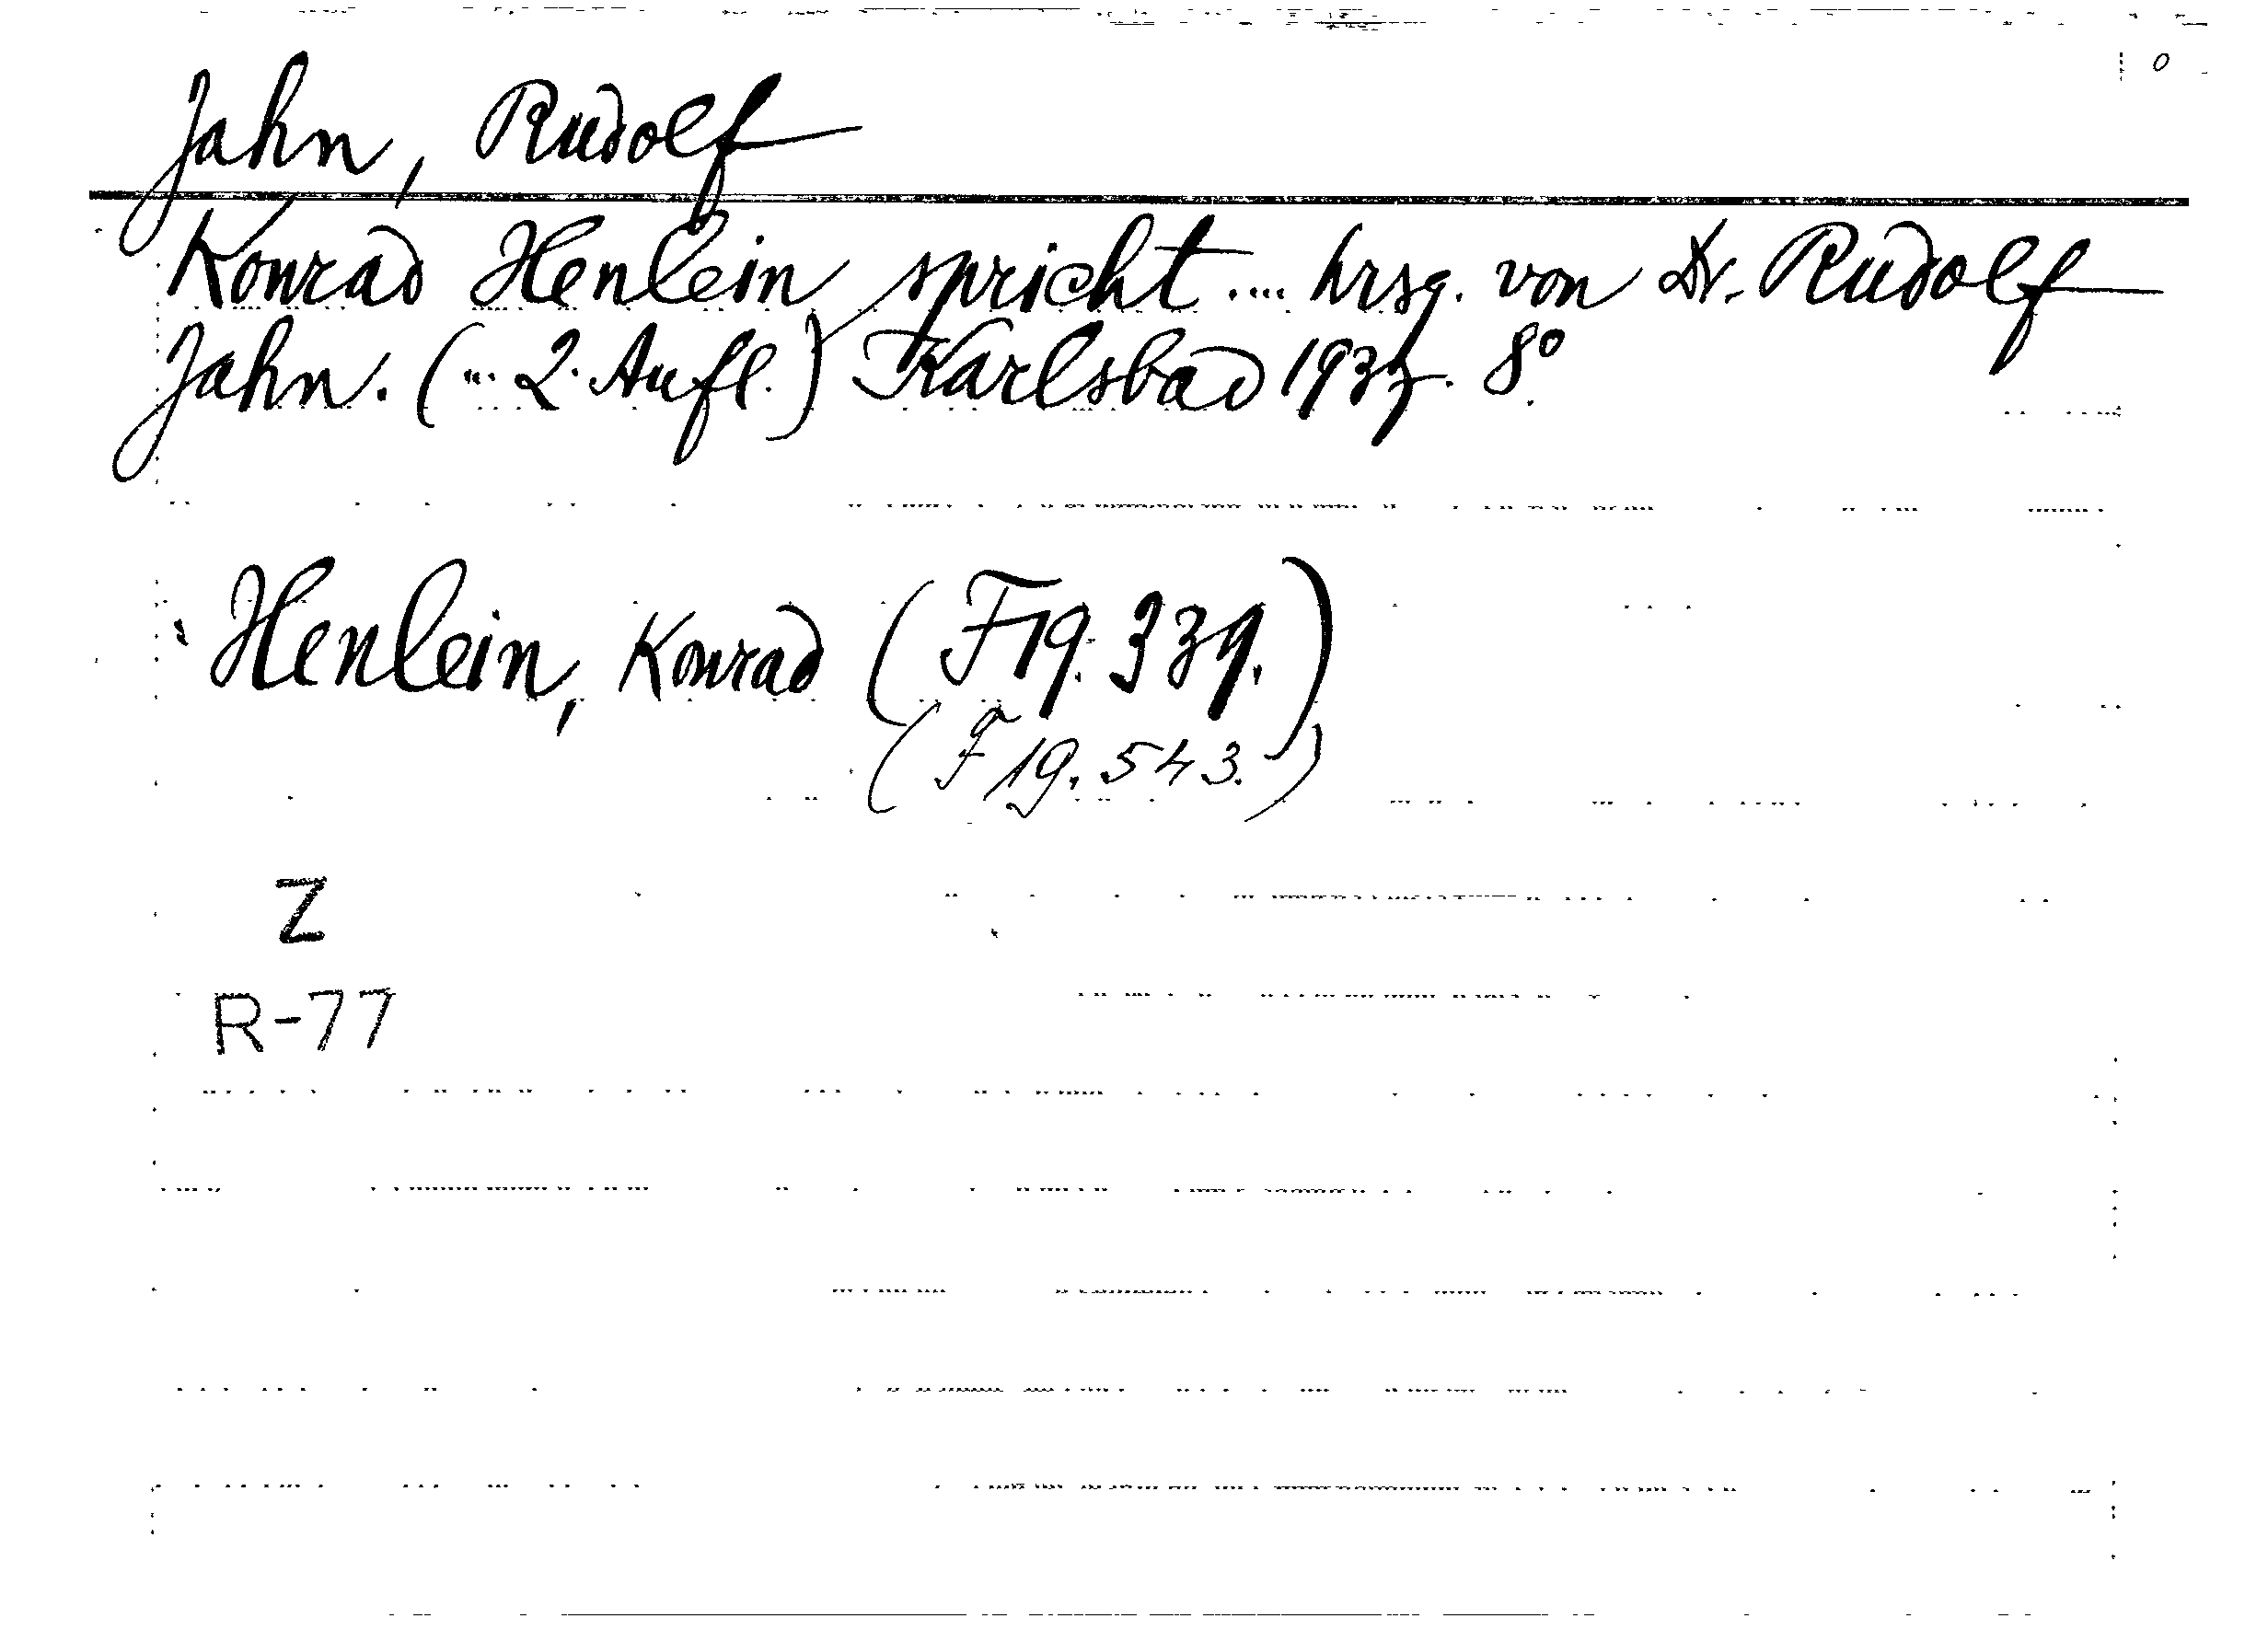 0
Jahn, Rudolf
Konrad Henlein spricht .... hrsg. von Dr. Rudolf
Jahn. (... 2. Aufl.) Karlsbad 1937. 8°
Henlein, Konrad (F19. 339.)
(F 19. 543.)
Z
R-77